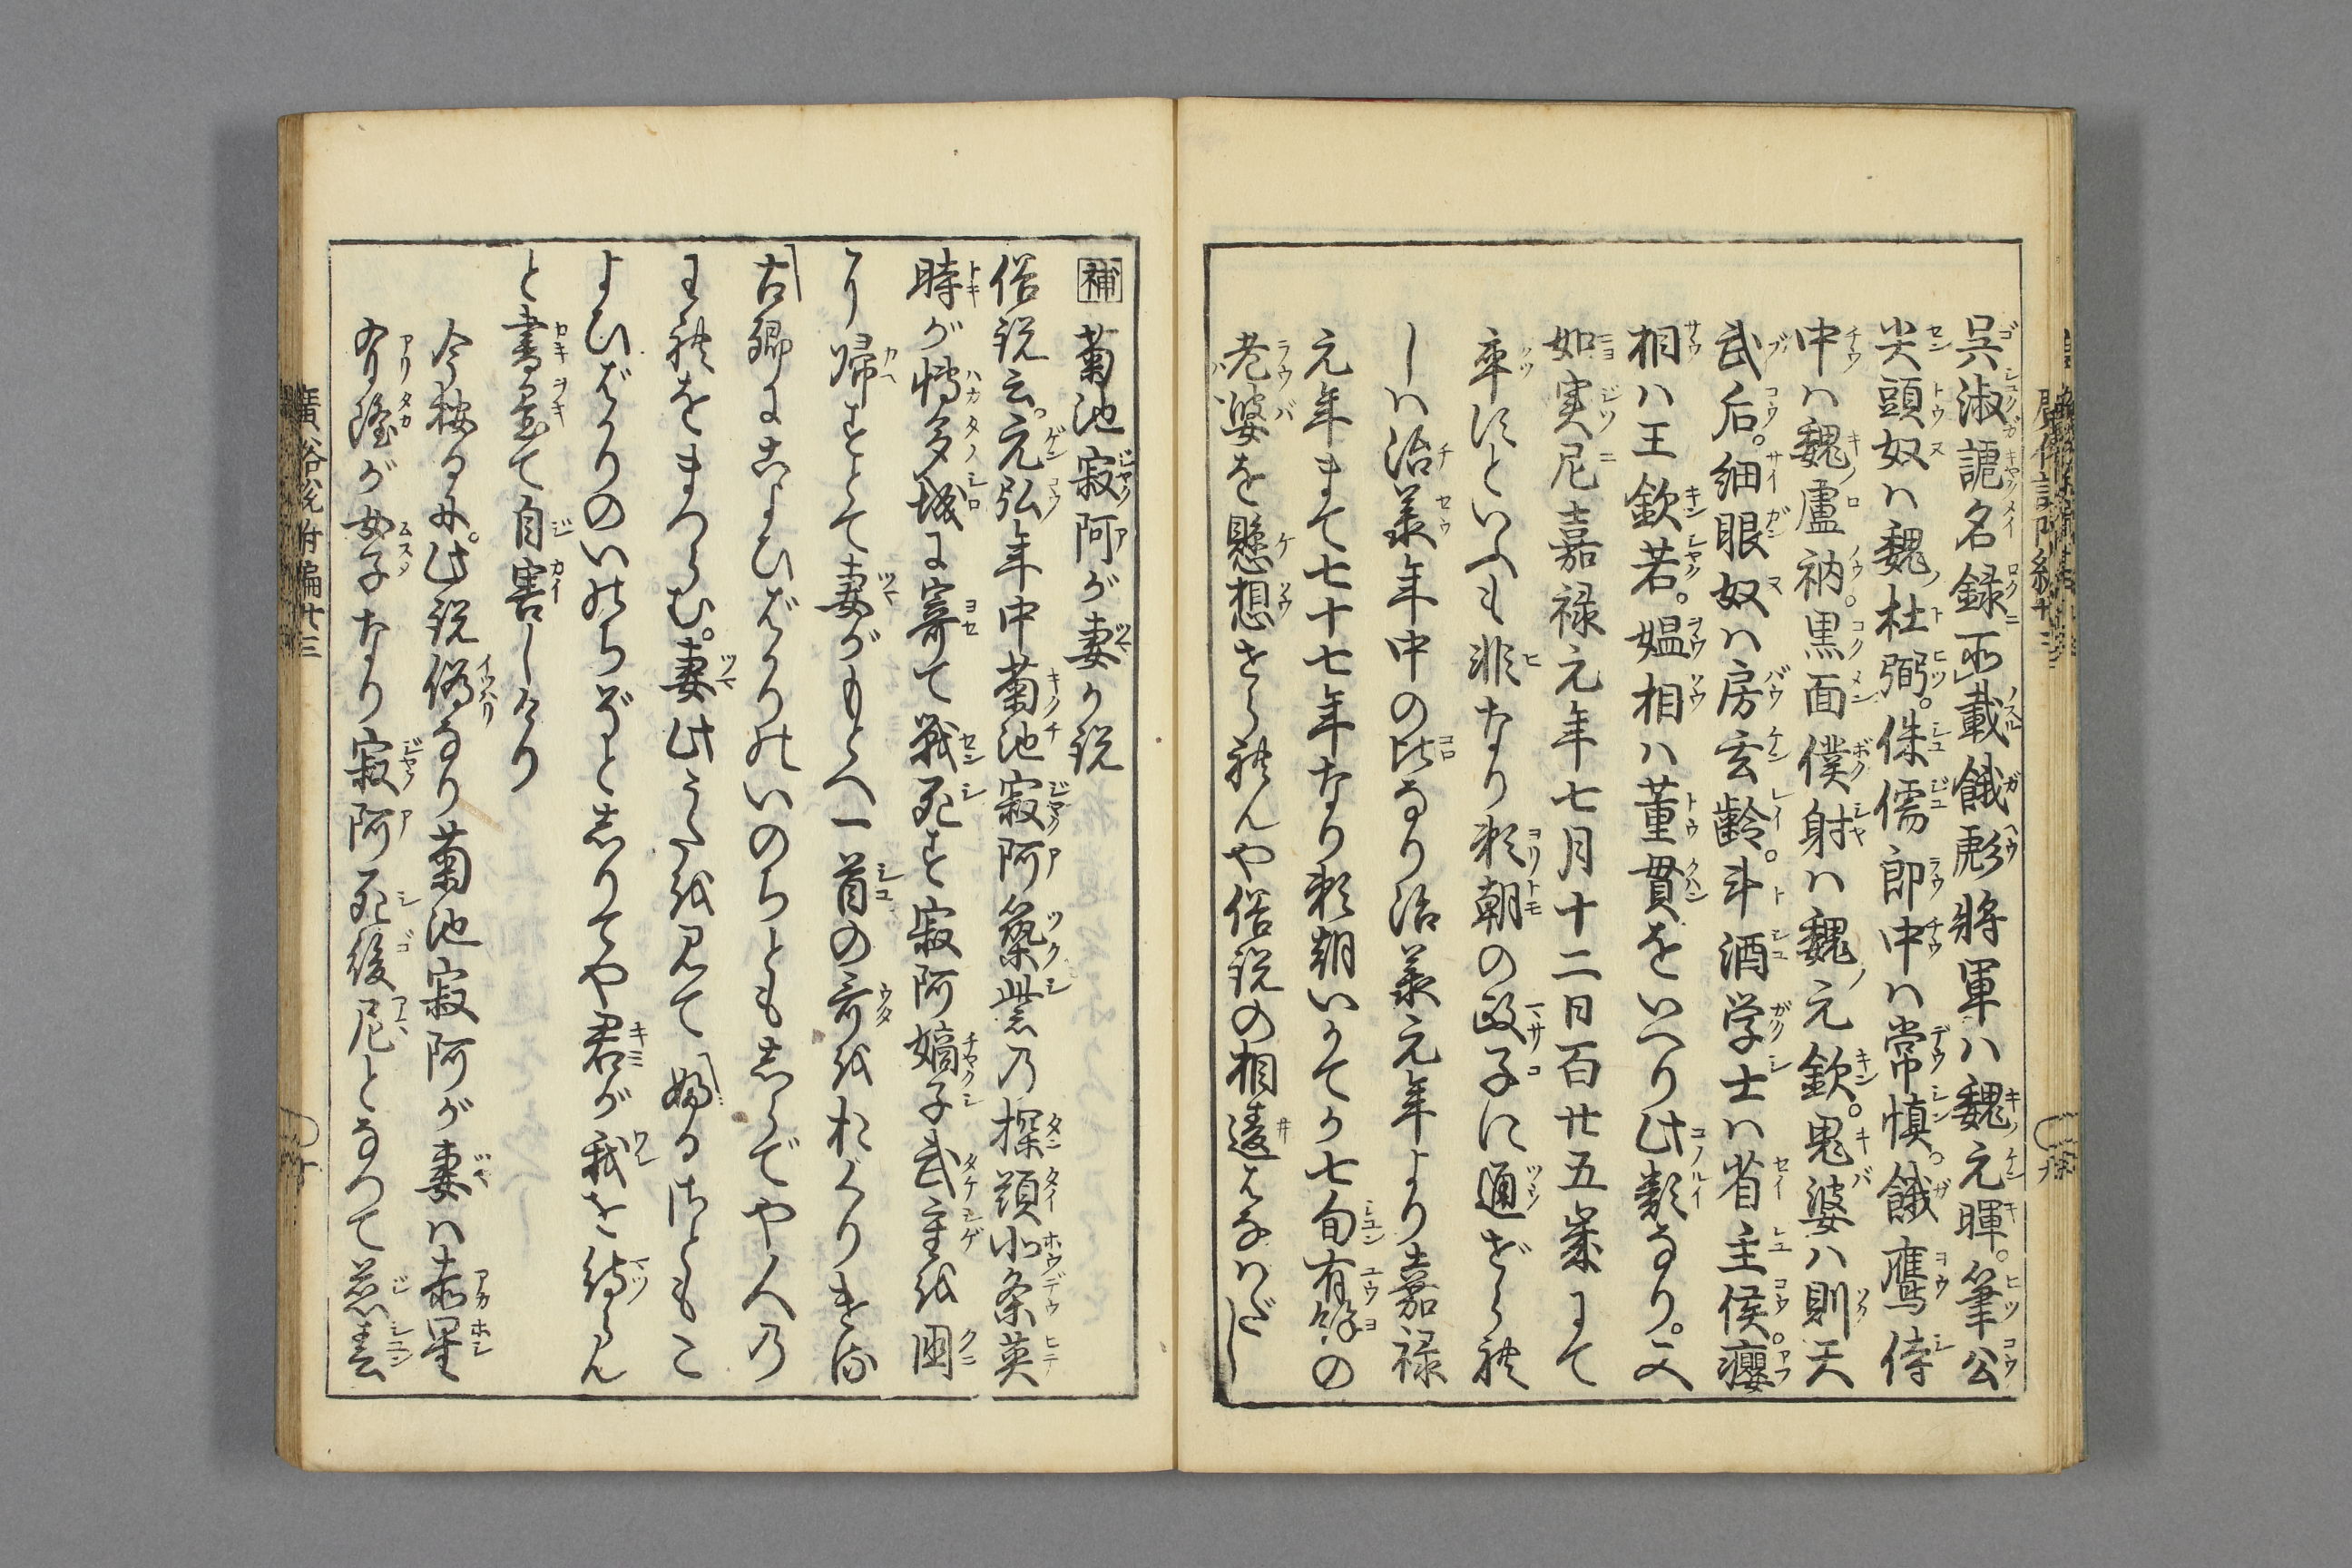 呉淑謔名録所載餓彪将軍ハ魏元暉。筆公
尖頭奴ハ魏ノ杜弼。侏儒郎中ハ常慎。餓鷹侍
中ハ魏ノ盧衲。黒面僕射ハ魏ノ元欽。鬼婆ハ則天
武后。細眼奴ハ房玄齢。斗酒学士ハ省主侯。癭
相ハ王欽若。媼相ハ董貫をいへり此類なり。又
如実尼嘉禄元年七月十二日百廿五歳にて
卒すといへも非なり頼朝の政子に通ぜられ
しハ治承年中の比なり治承元年より嘉禄
元年まて七十七年なり頼朝いかてか七旬有餘の
老婆を懸想せられんや俗説の相違はなハだし
補 菊池寂阿が妻か説
俗説云。元弘年中菊池寂阿築紫乃探題北条英
時が博多城に寄て戦死す寂阿嫡子武重を国
より帰すとて妻がもとへ一首の哥をおくりける
古郷にこよひばかりのいのちともしらでや人乃
われをまつらむ。妻此うたを見て 婦るさともこ
よひばかりのいのちぞとしりてや君が我を待らん
と書置て自害しけり
今按るに。此説偽なり菊池寂阿が妻ハ赤星
有隆が女子なり寂阿死後尼となつて慈春
廣俗説附編廿三